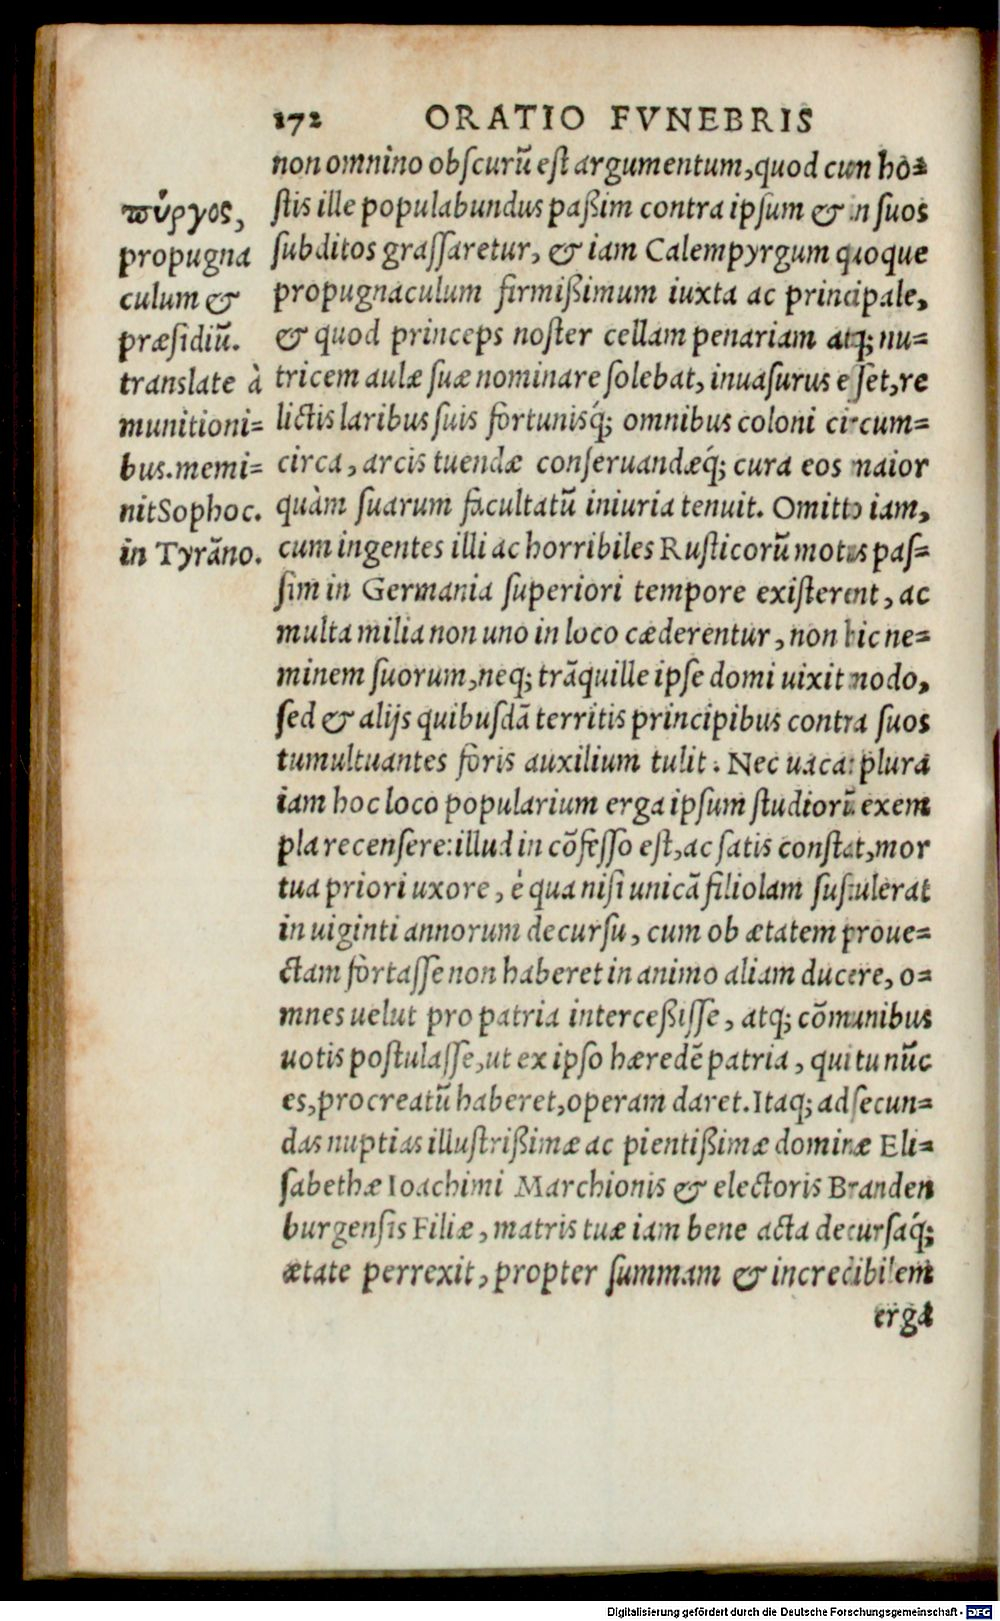 172 ORATIO FVNEBRIS
non omnino obscurũ est argumentum, quod cum ho=
stis ille populabundus paßim contra ipsum & in suos
subditos grassaretur, & iam Calempyrgum quoque
propugnaculum firmißimum iuxta ac principale,
& quod princeps noster cellam penariam atq; nu=
tricem aulæ suæ nominare solebat, inuasurus esset, re
lictis laribus suis fortunisq́; omnibus coloni circum=
circa, arcis tuendæ conseruandæq́; cura eos maior
quàm suarum facultatũ iniuria tenuit. Omitto iam,
cum ingentes illi ac horribiles Rusticorũ motus pas=
sim in Germania superiori tempore existerent, ac
multa milia non uno in loco cæderentur, non hic ne=
minem suorum, neq; trãquille ipse domi uixit modo,
sed & alijs quibusdã territis principibus contra suos
tumultuantes foris auxilium tulit. Nec uacat plura
iam hoc loco popularium erga ipsum studiorũ exem
pla recensere: illud in cõfesso est, ac satis constat, mor
tua priori uxore, è qua nisi unicã filiolam sustulerat
in uiginti annorum decursu, cum ob ætatem proue=
ctam fortasse non haberet in animo aliam ducere, o=
mnes uelut pro patria interceßisse, atq; cõmunibus
uotis postulasse, ut ex ipso hæredẽ patria, qui tu nũc
es, procreatũ haberet, operam daret. Itaq; ad secun=
das nuptias illustrißimæ ac pientißimæ dominæ Eli=
sabethæ Ioachimi Marchionis & electoris Branden
burgensis Filiæ, matris tuæ iam bene acta decursaq́;
ætate perrexit, propter summam & incredibilem
erga
πύργος,
propugna
culum &
præsidiũ.
translate à
munitioni=
bus. memi=
nit Sophoc.
in Tyrãno.
Digitalisierung gefördert durch die Deutsche Forschungsgemeinschaft - DFG